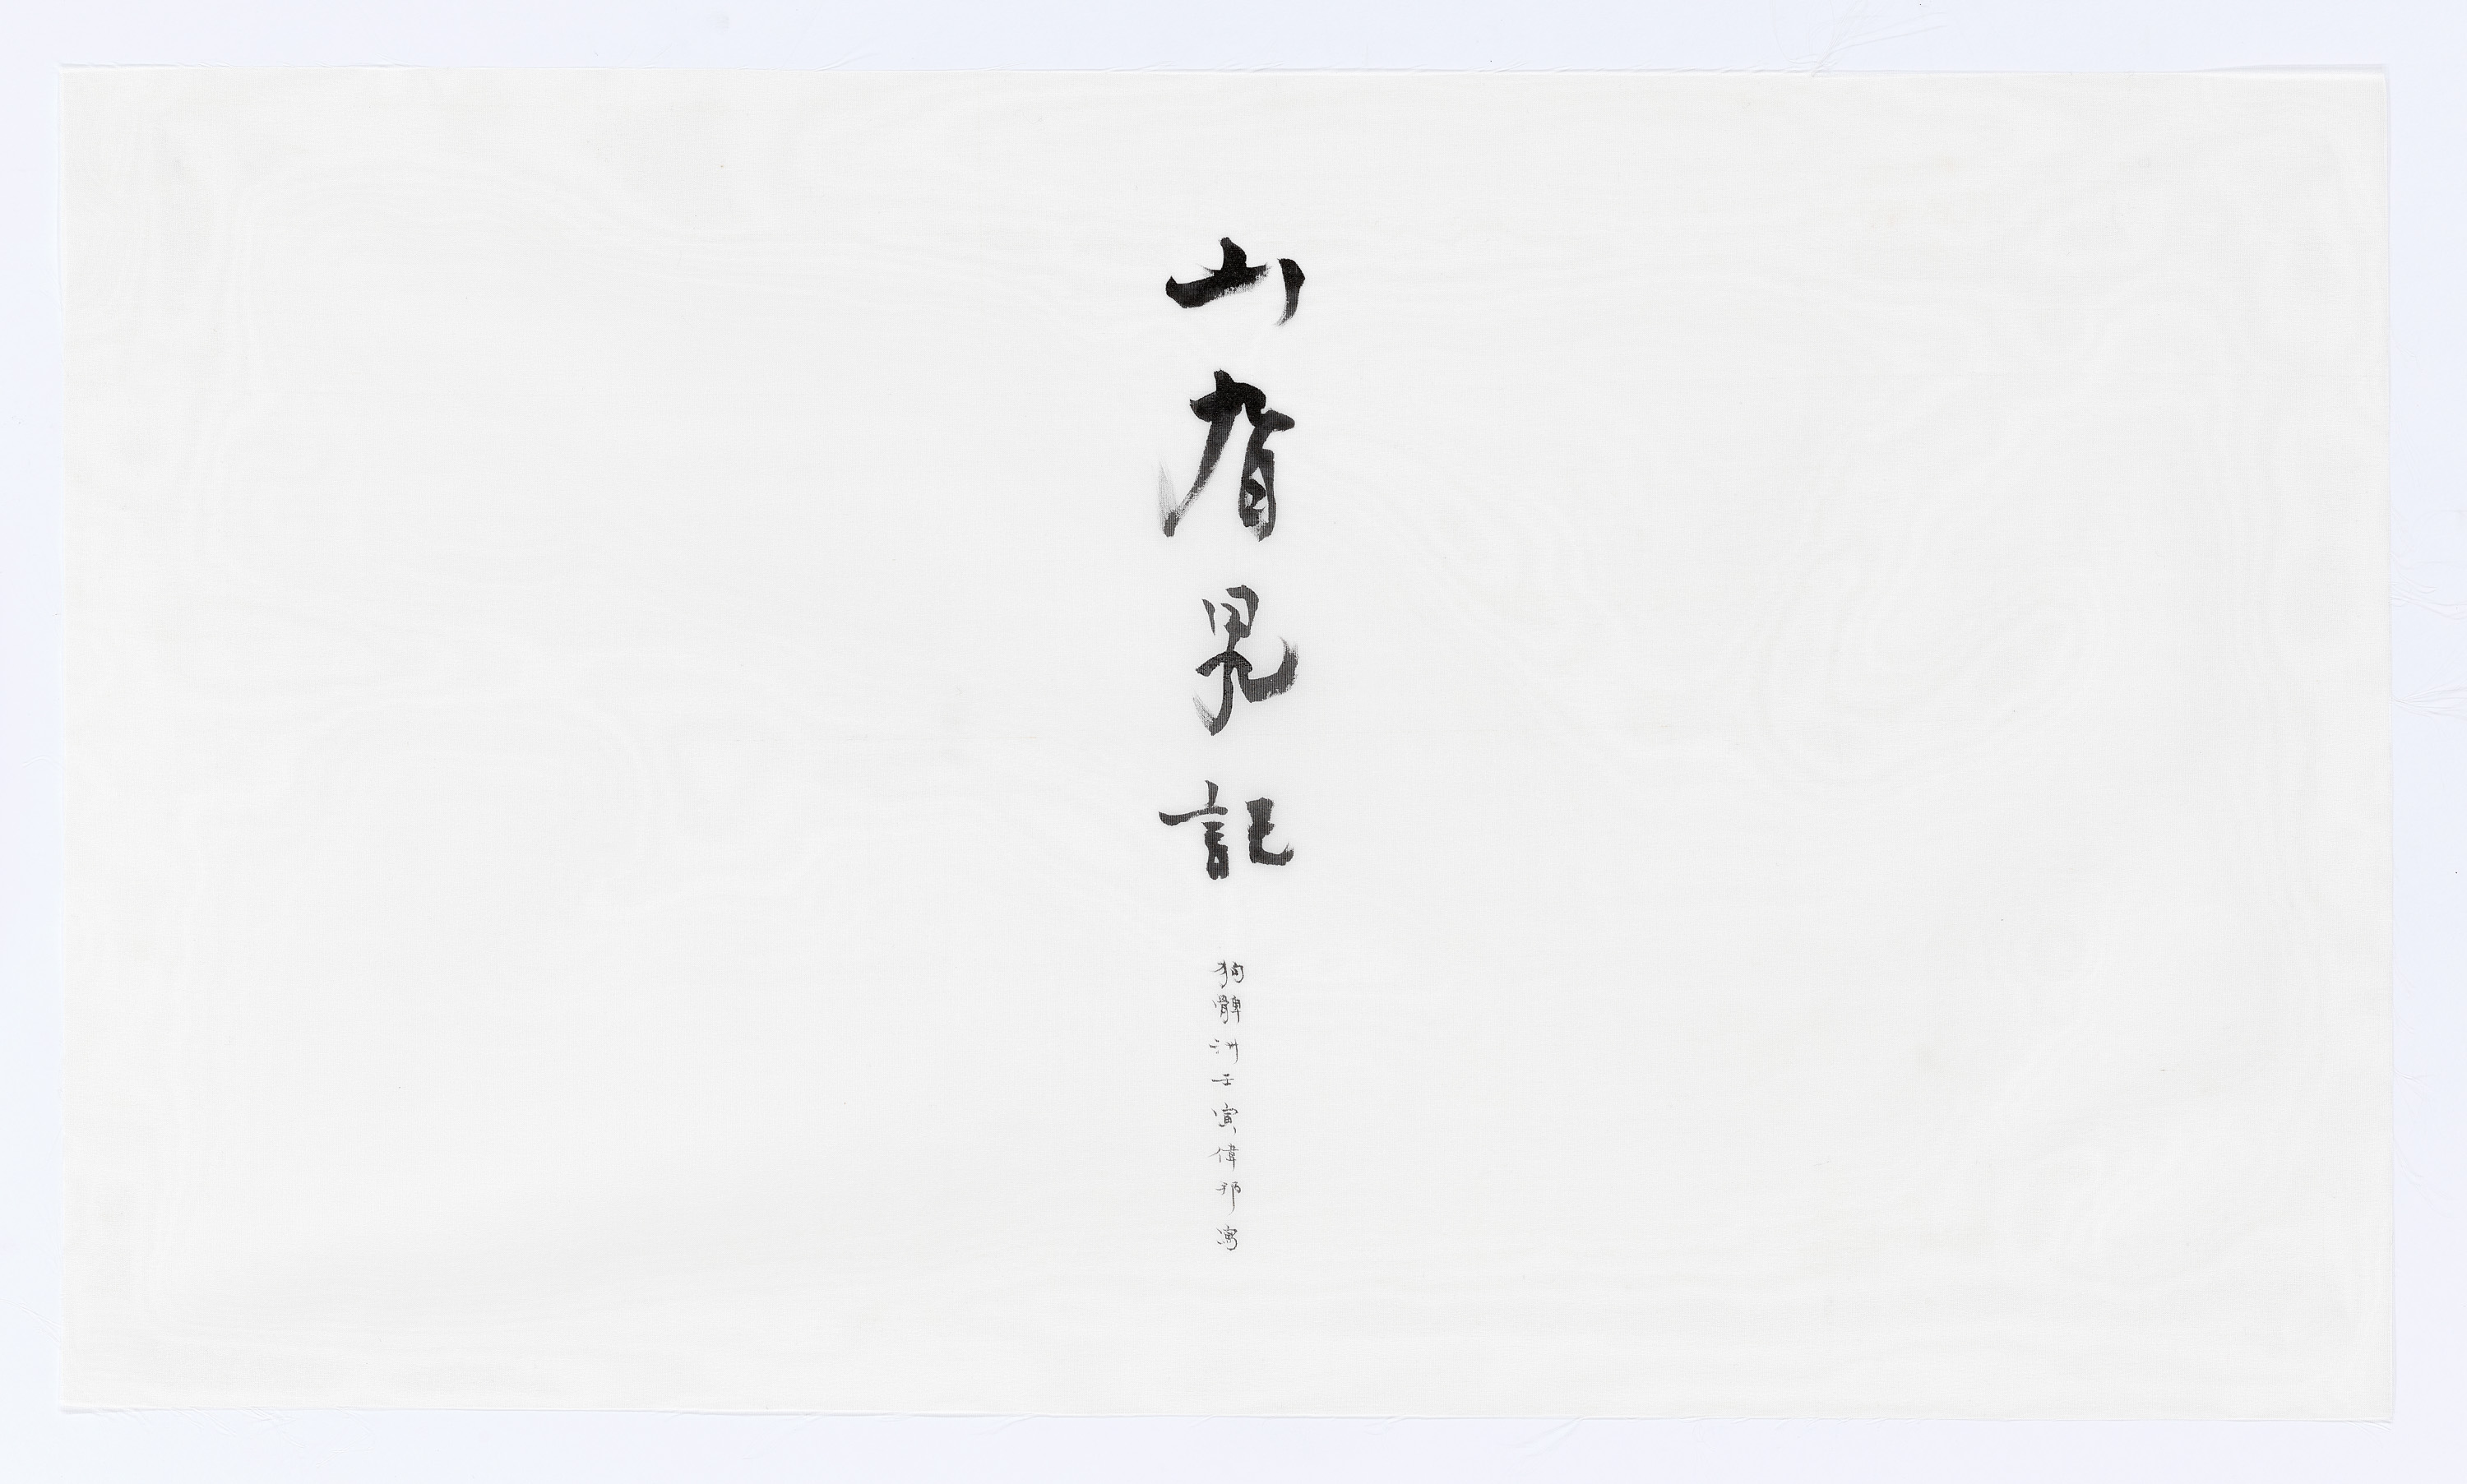 山見記
狗髀洲壬寅偉邦寫